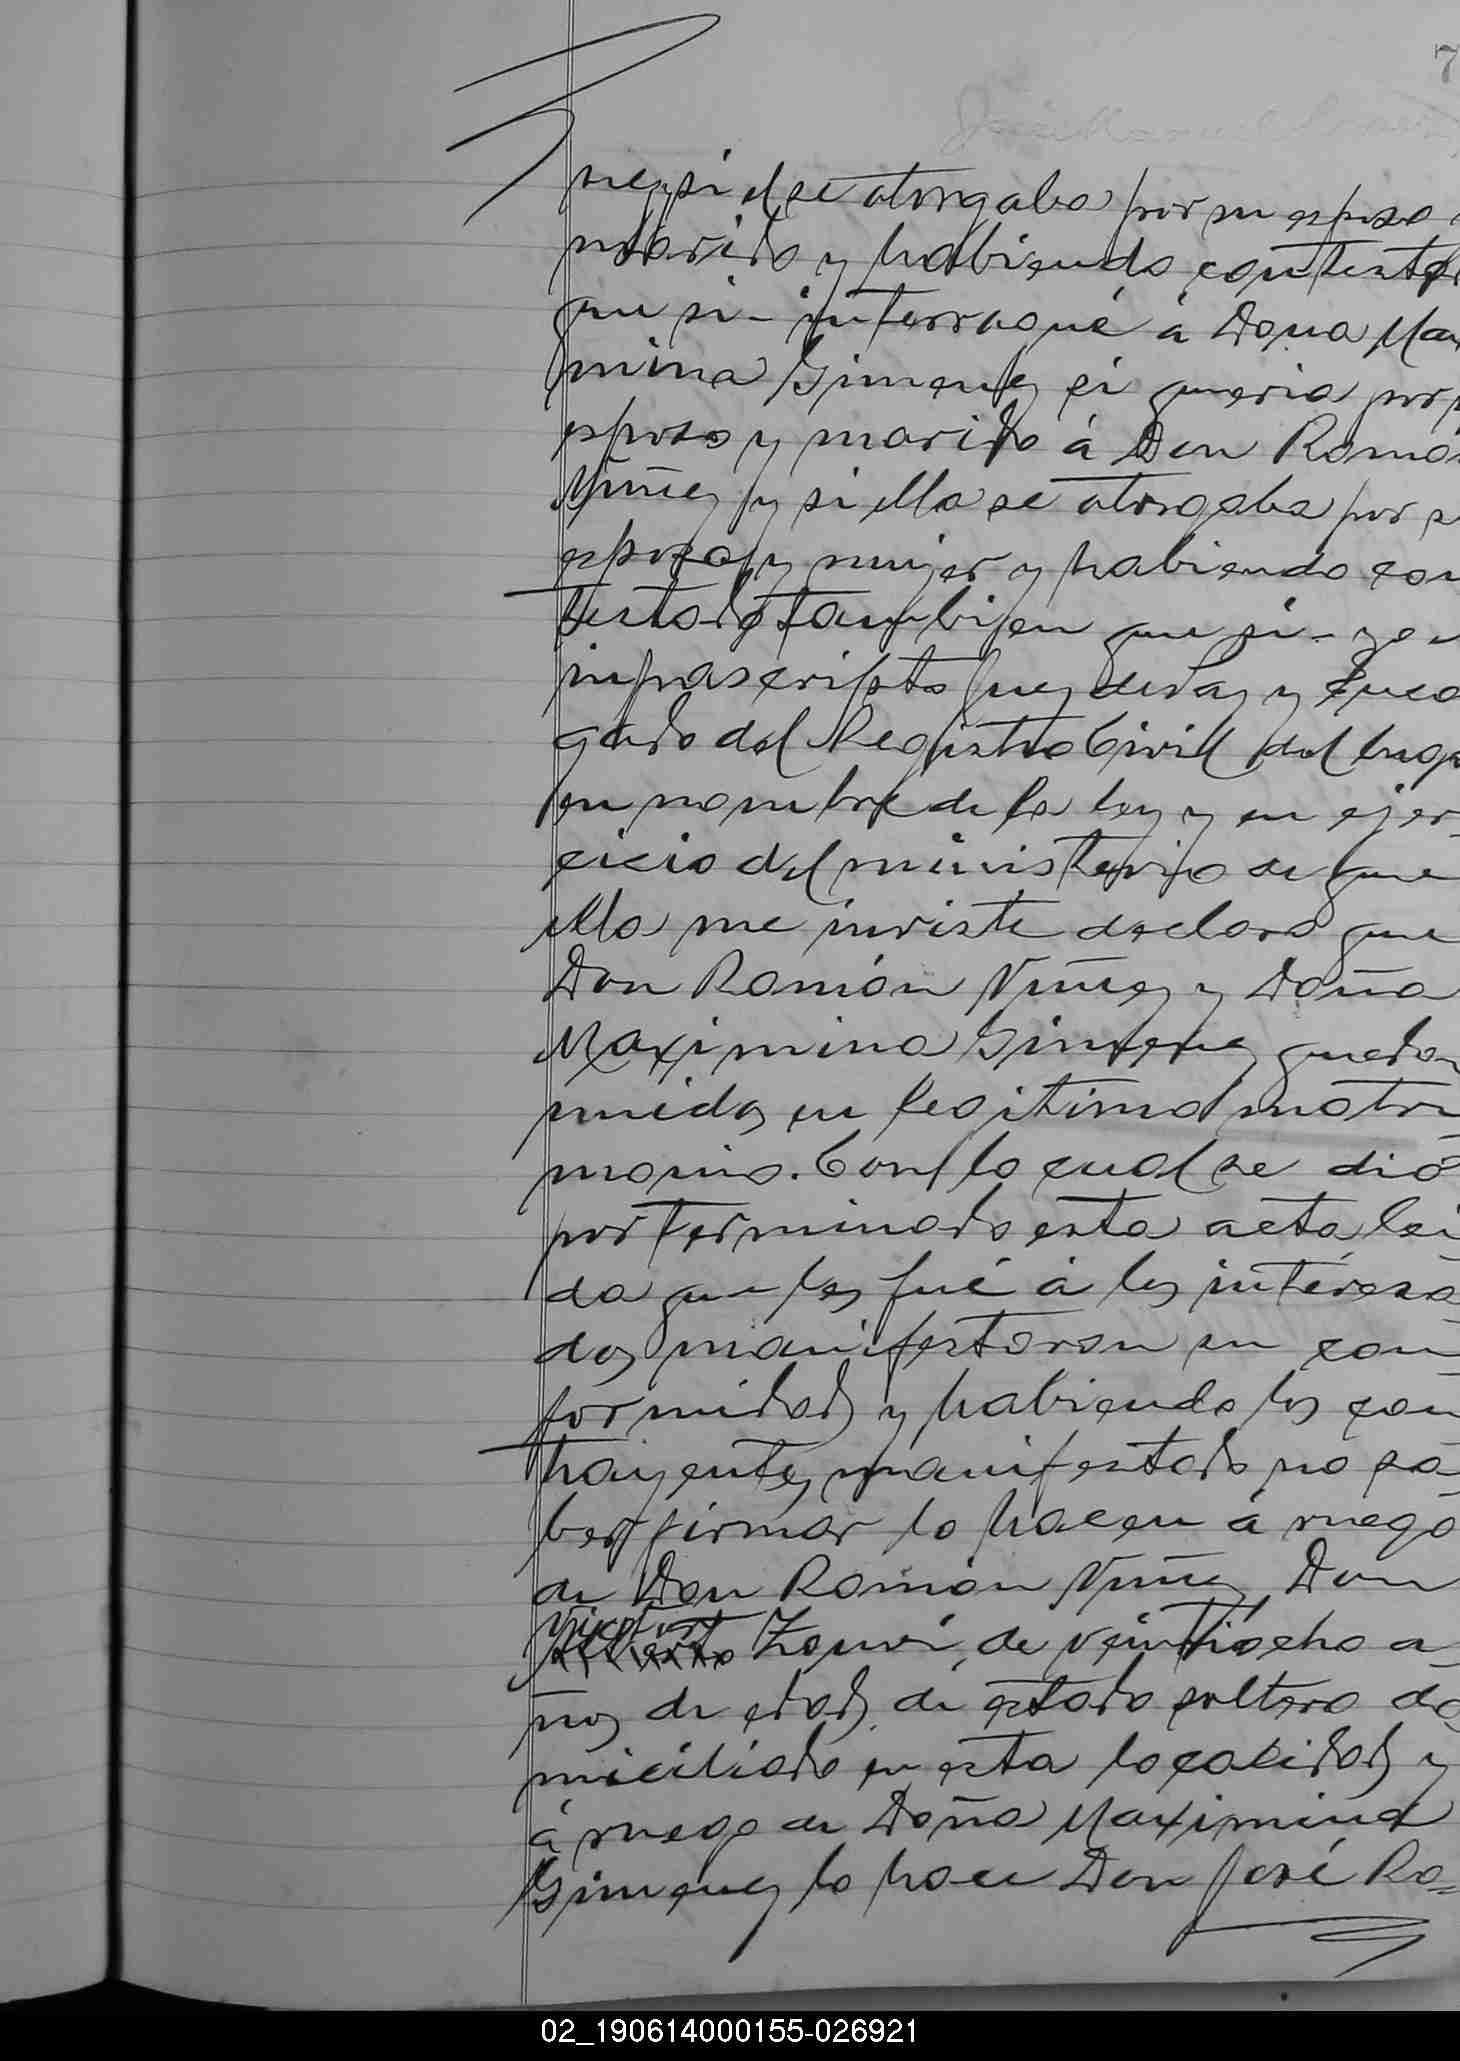 7
nez, si el se otorgaba por su esposo
marido y habiendo contesta
que si- interrogué á Doña Ma
mina Gimenez si queria por
esposo y marido á Don Ramo
Nuñez y si ella se otorgaba por s
esposa y mujer y habiendo con
testado tambien que si- yo
infrascripto Juez de Paz y Enca
gado del Registro Civil del luga
en nombre de la ley y en ejer-
cicio del ministerio de que
ella me inviste declaro que
Don Ramón Nuñez y Doña
Maximina Gimenez quedan
unidos en legitimo matri
monio. Con lo cual se dió
por terminado esta acta lei
da que les fué á los interesa
dos manifestaron su con
formidad y habiendo los con
trayentes manifestado no sa
ber firmar lo hacen á ruego
de Don Ramón Nuñez Don
Victor
de veintiocho a-
ños de edad, de estado soltero do
miciliado en esta localidad y
á ruego de Doña Maximina
Gimenez lo hace Don José Ro=
02_190614000155-026921